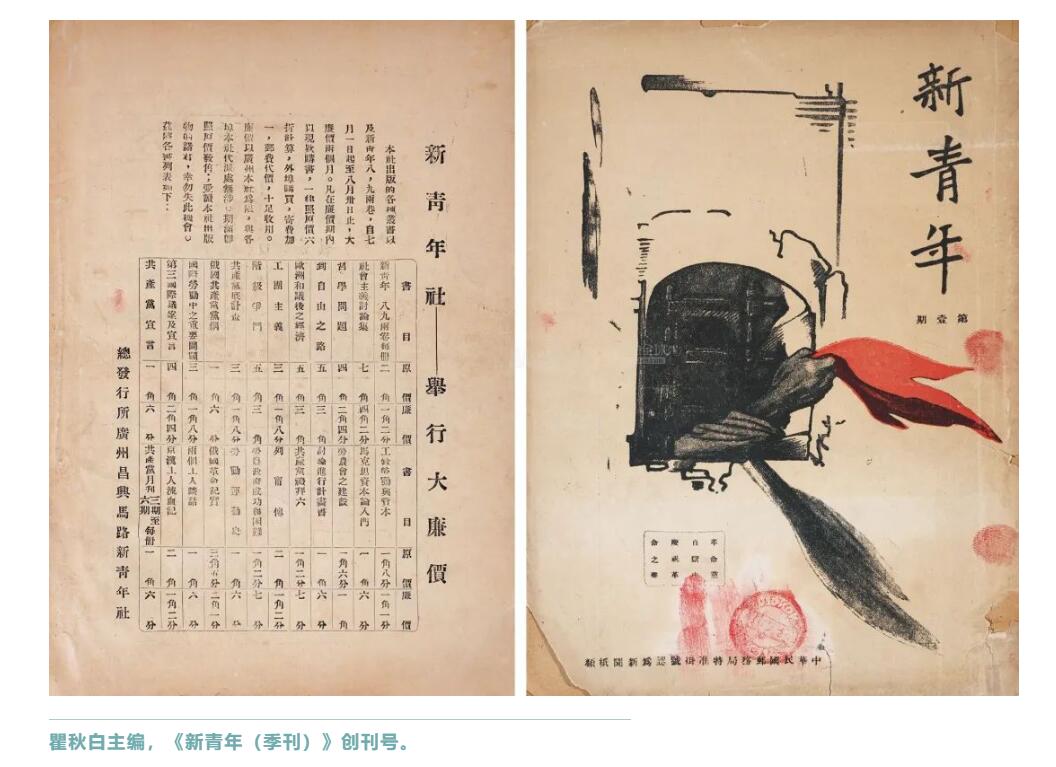 新青年社——舉行大廉價
本社出版的各種叢書以
及新青年八,九兩卷,自七
月一日起至八月卅日止,大
廉價兩個月。凡在廉價期內
以現欵購書,一律照原價六
折計算,外埠購買,寄費加
一,郵費代價,十足收用。
廉價以廣州本社為限,與各
埠本社代派處無涉。期滿卽
照原價發售;愛讀本社出版
物的諸君,幸勿失此機會。
茲將各書列表如下:
書目 原價 廉價 書目 原價 廉價
新青年 八九兩卷每冊 二角 一角二分 工錢勞動與資本 一角八分 一角一分
社會主義討論集 七角 四角二分 馬克思資本論入門 一角 六分
哲學問題 四角 二角四分 勞農會之建設 一角六分 一角
到自由之路 五角 三角 討論進行計畫書 一角 六分
歐洲和議後之經濟 五角 三角 共產黨禮拜六 一角二分 七分
工團主義 三角 一角八分 列寧傳 二角 一角二分
階級爭鬥 五角 三角 勞農政府成功與困難 一角二分 七分
共產黨底計畫 三角 一角八分 勞動運動史 一角 六分
俄國共產黨黨綱 一角 六分 俄國革命紀實 三角五分 二角一分
國際勞動中之重要問題 三角 一角八分 兩個工人談話 一角 六分
第三國際議案及宣言 四角 二角四分 京漢工人流血記 二角 一角二分
共產黨宣言 一角 六分 共產黨月刊三期至六期每冊 一角 六分
總發行所廣州昌興馬路新青年社
新青年
第壹期
中華民國郵務局特准掛號認為新聞紙類
瞿秋白主编，《新青年（季刊）》创刊号。